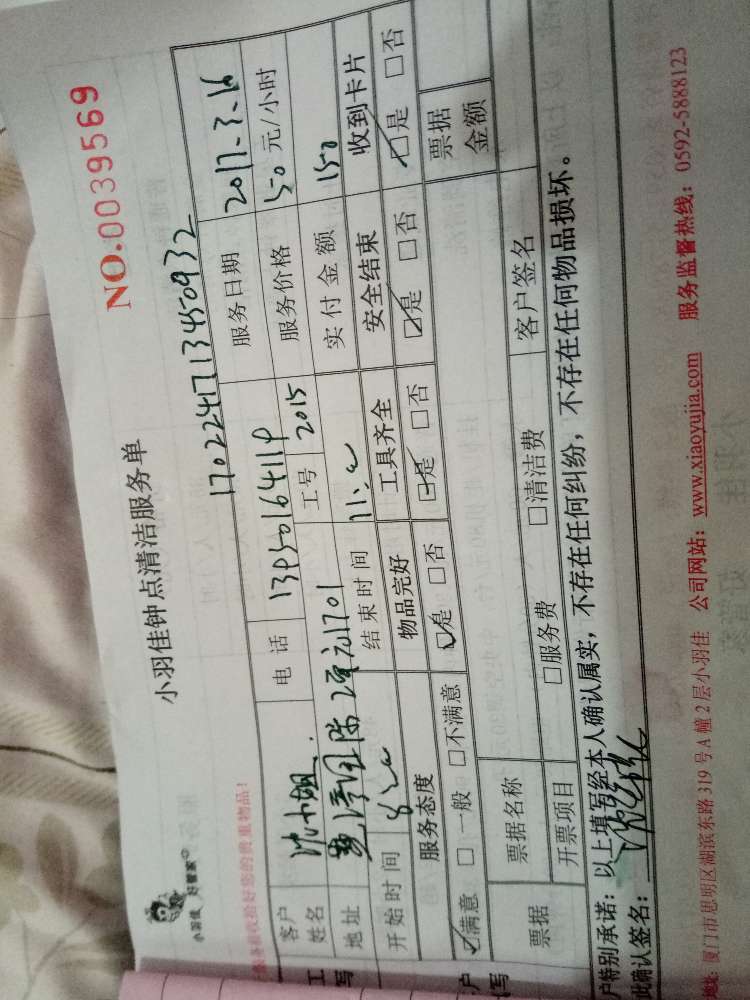 小羽佳 好管家
小羽佳钟点清洁服务单
NO.0039569
收拾好您的贵重物品!
1702241713450932
客户姓名 沈小姐 电话 服务日期 2017.3.16
地址 工号 2015 服务价格 50 元/小时
开始时间 结束时间 实付金额 150
服务态度 物品完好 工具齐全 安全结束 收到卡片
☑满意 □一般 □不满意 ☑是 □否 ☑是 □否 ☑是 □否 ☑是 □否
票据 票据名称 □服务费 □清洁费 客户签名 票据金额
开票项目
户特别承诺：以上填写经本人确认属实，不存在任何纠纷，不存在任何物品损坏。
此确认签名：
地址：厦门市思明区湖滨东路319号A幢2层小羽佳 公司网站：www.xiaoyujia.com 服务监督热线：0592-5888123